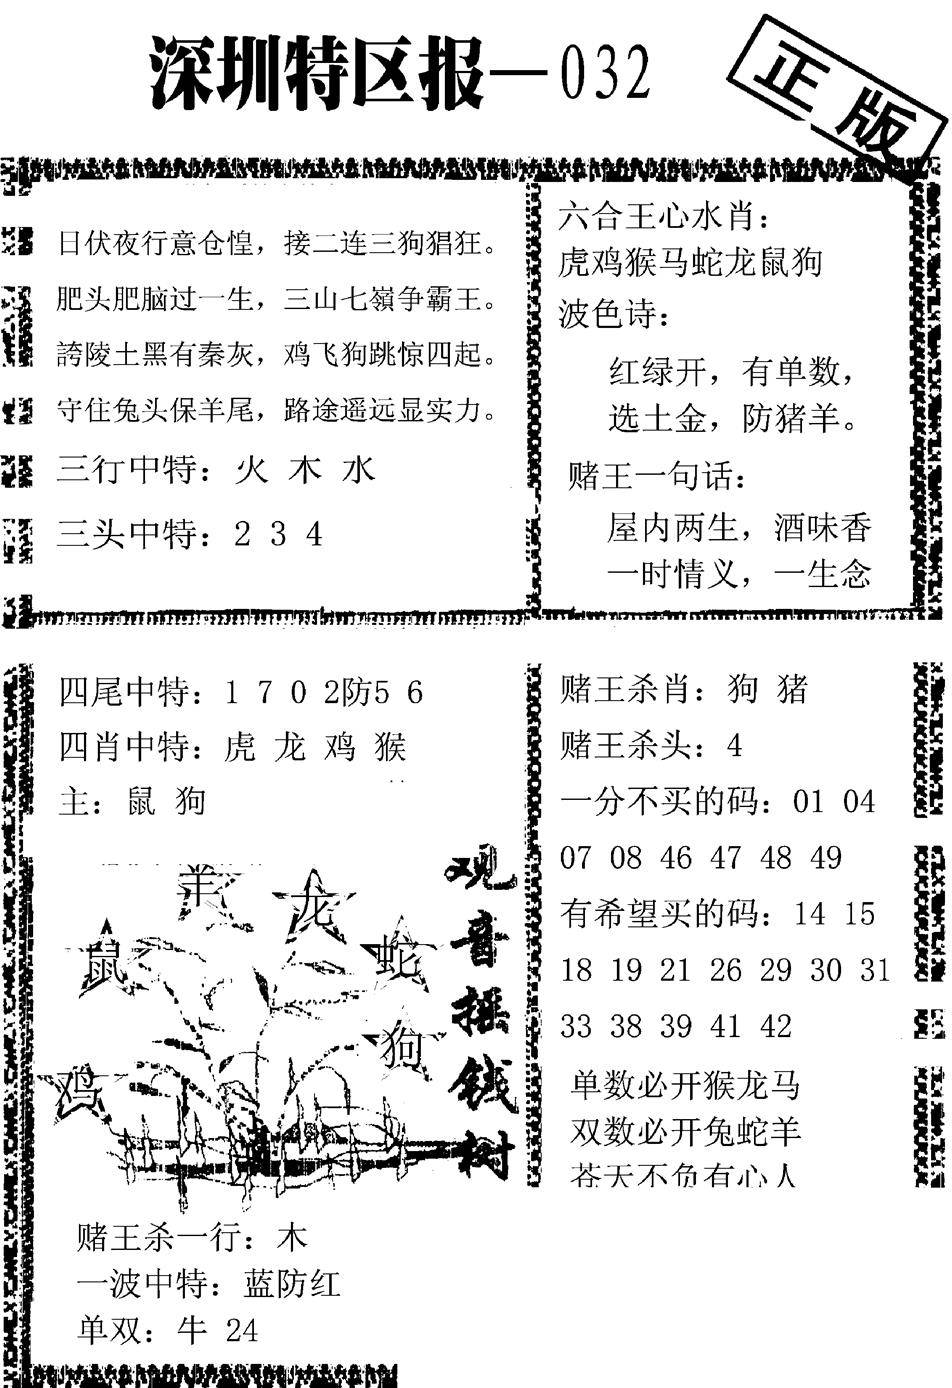 深圳特区报—032
正版
日伏夜行意仓惶，接二连三狗猖狂。
肥头肥脑过一生，三山七嶺争霸王。
誇陵土黑有秦灰，鸡飞狗跳惊四起。
守住兔头保羊尾，路途遥远显实力。
三行中特：火 木 水
三头中特：2 3 4
六合王心水肖：
虎鸡猴马蛇龙鼠狗
波色诗：
红绿开，有单数，
选土金，防猪羊。
赌王一句话：
屋内两生，酒味香
一时情义，一生念
四尾中特：1 7 0 2防5 6
四肖中特：虎 龙 鸡 猴
主：鼠 狗
羊
龙
鼠
蛇
狗
鸡
观音摇钱树
赌王杀一行：木
一波中特：蓝防红
单双：牛 24
赌王杀肖：狗 猪
赌王杀头：4
一分不买的码：01 04
07 08 46 47 48 49
有希望买的码：14 15
18 19 21 26 29 30 31
33 38 39 41 42
单数必开猴龙马
双数必开兔蛇羊
苍天不负有心人